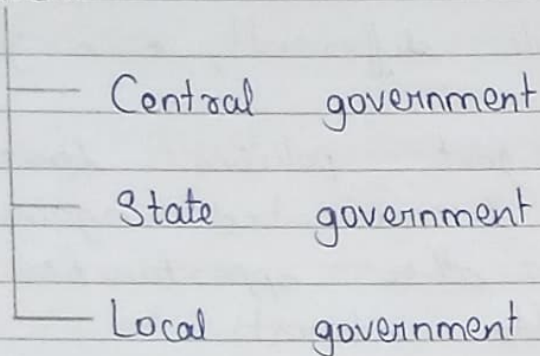 Central government
State government
Local government